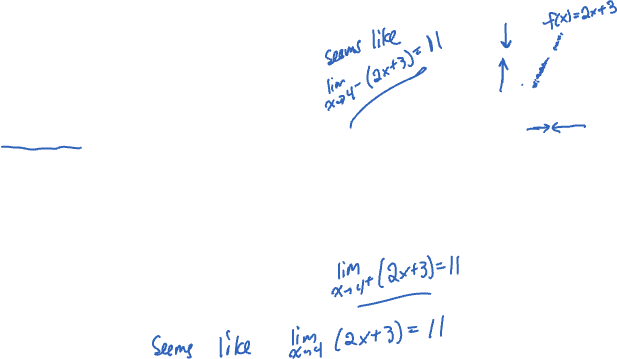 f(x)=2x+3
seems like
lim x→4⁻ (2x+3)=11
lim x→4+ (2x+3)=11
Seems like lim x→4 (2x+3)=11